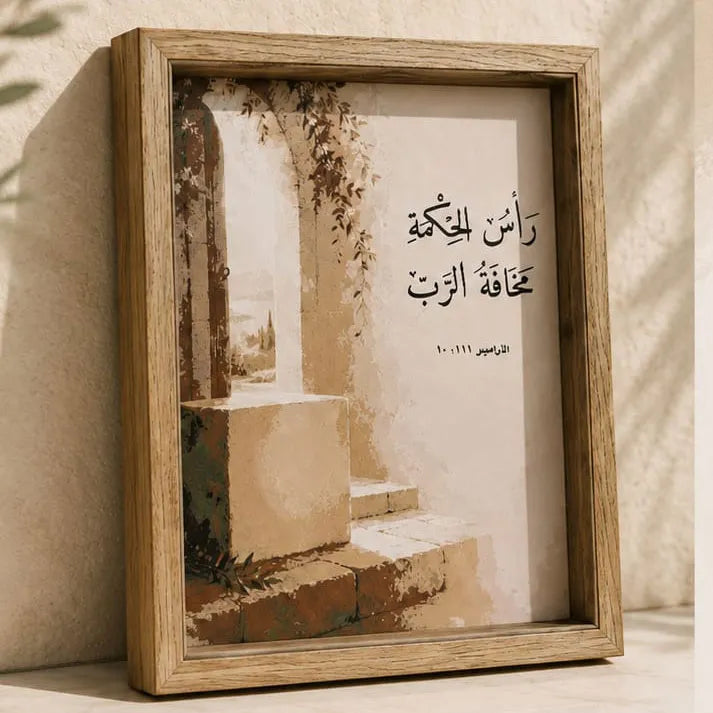 رَأْسُ الحِكْمَةِ
مَخَافَةُ الرَّبّ
المزامير ١١١ : ١٠